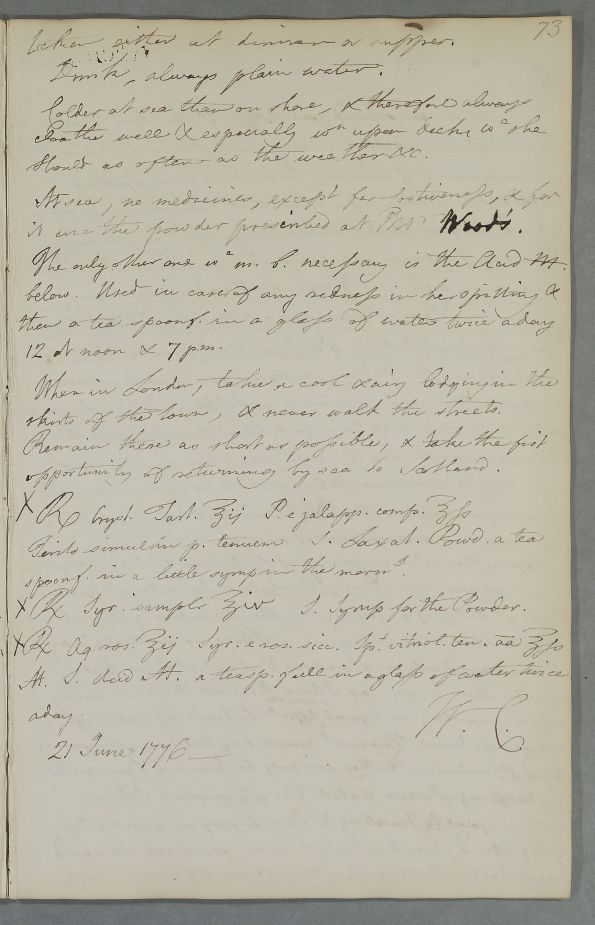 73
taken either at dinner or supper.
Drink, always plain water.
Colder at sea than on shore, & therefore always
cloathe well & especially wn upon deck, wc she
should as often as the weather &c.
At sea, no medicines, except for costiveness, & for
it use the powder prescribed at Mr Wood's.
The only other one wc m. b. necessary is the Acid M.
below. Used in case of any redness in her spitting &
then a tea spoonf. in a glass of water twice a day
12 at noon & 7 p.m.
When in London, take a cool & airy lodging in the
skirts of the town, & never walk the streets.
Remain there as short as possible, & take the first
opportunity of returning by sea to Scotland.
X ℞ Cryst. Tart. ℥ij P. e jalapp. comp. ℥ss
simul in p. tenuem S. Laxat. Powd. a tea
spoonf. in a little syrup in the morng.
X ℞ Syr. simpl. ℥iv S. Syrup for the Powder.
X ℞ Aq. ros. ℥ij Syr. e ros. sicc. Spt. vitriol. ten. aa ℥ss
M. S. Acid M. a teasp. full in a glass of water twice
a day. W. C.
21 June 1776